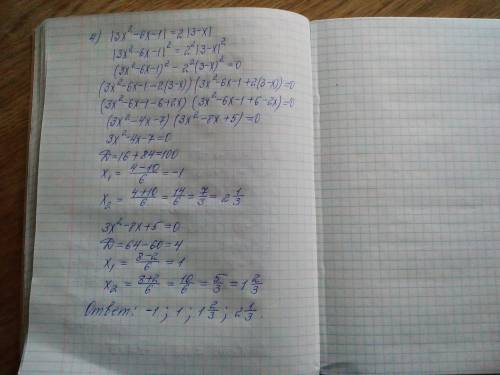 а) |3x²-6x-1|=2|3-x|
|3x²-6x-1|²=2²|3-x|²
(3x²-6x-1)²-2²(3-x)²=0
(3x²-6x-1-2(3-x))(3x²-6x-1+2(3-x))=0
(3x²-6x-1-6+2x)(3x²-6x-1+6-2x)=0
(3x²-4x-7)(3x²-8x+5)=0
3x²-4x-7=0
D=16+84=100
x₁=(4-10)/6=-1
x₂=(4+10)/6=14/6=7/3=2 1/3
3x²-8x+5=0
D=64-60=4
x₁=(8-2)/6=1
x₂=(8+2)/6=10/6=5/3=1 2/3
Ответ: -1; 1; 1 2/3; 2 1/3.